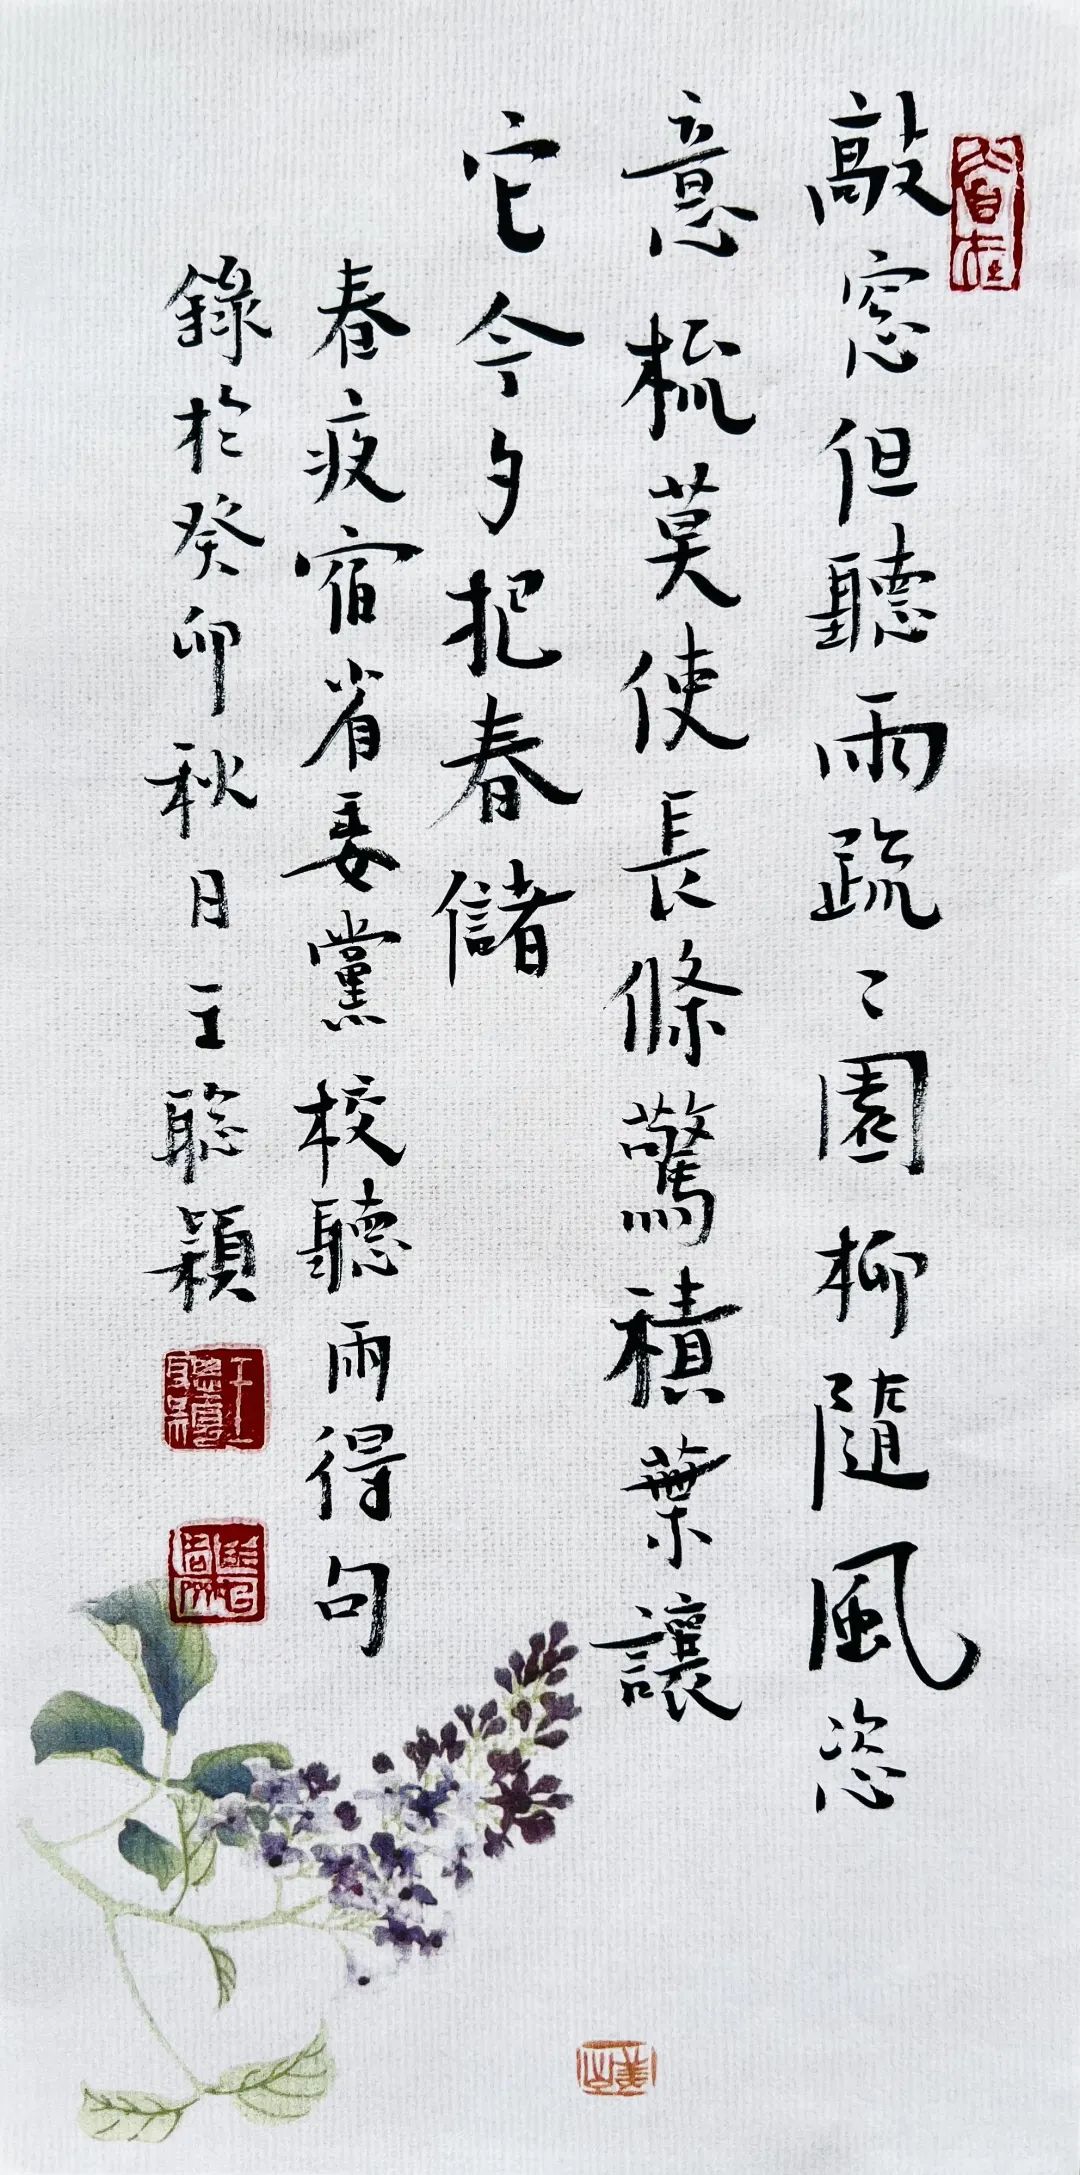 敲窓但聽雨疏〻園柳隨風恣
意梳莫使長條驚積葉讓
它今夕把春儲
春夜宿省委黨校聽雨得句
錄於癸卯秋日王聰穎